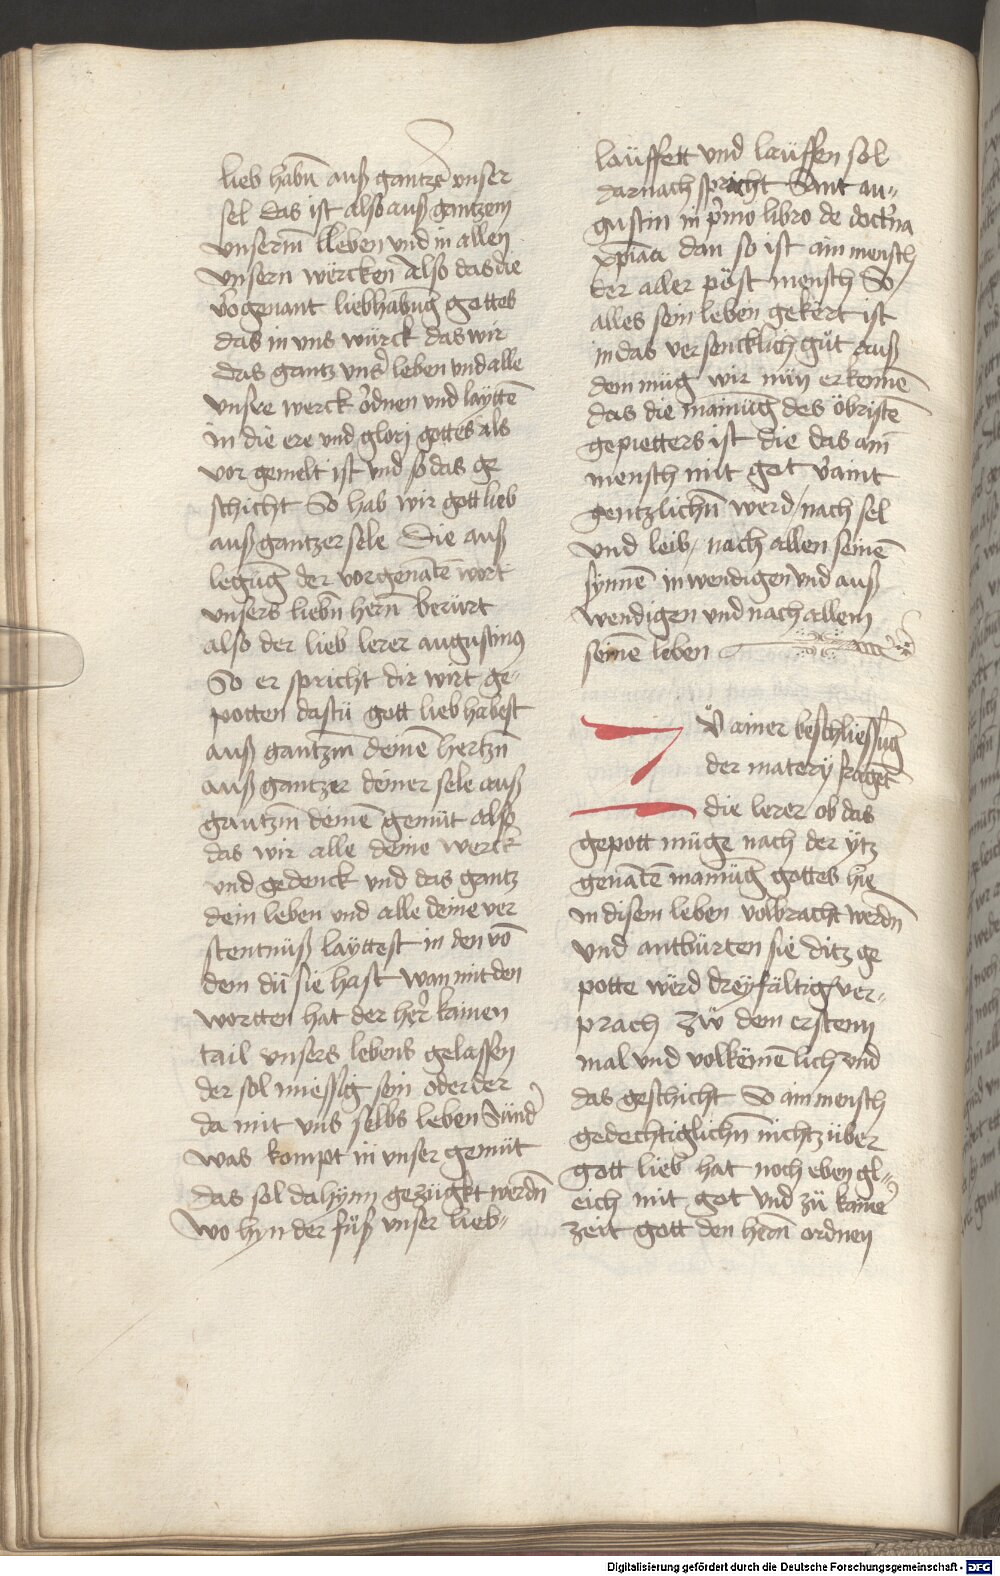 lieb habn̄ auß gantzer unser
sel das ist also auß gantzem
unserm lleben und in allen
unsern wërcken Also das die
vorgenant liebhabūg gottes
das in uns würck das wir
das gantz unser leben und alle
unsre werck ordnen und läyttē
in die ere und glorj gottes als
vor gemelt ist und so das ge
schicht So hab wir gott lieb
auß gantzer sele Die auß
legūg der vorgenātē wort
unsers liebn̄ hern̄ berürt
also der lieb lerer augustinꝰ
So er spricht dir wirt ge-
potten dastü gott lieb habest
auß gantzm̄ deinē hertzn̄
auß gantzer deiner sele auß
gantzm̄ deinē gemüt also
das wir alle deine werck
und gedenck und das gantz
dein leben und alle deine ver
stentnüß läyttest in den vō
dem dü sie hast wan mit den
wortten hat der her kainen
tail unsers lebens gelassen
der sol miessig sein oder der
da mit uns selbs leben sünd
was kompt in unser gemüt
das sol dahynn gezügkt werdn̄
wo hyn der füß unser lieb-
läüffett und läüffen sol
darnach spricht Sant au-
gustin in pͥmo libro de doctͥna
xpiāa dan so ist ain mensch
der aller pöst mensch So
alles sein leben gekert ist
in das versencklich güt auß
dem müg wir nün erkennē
das die mainūg des öbristē
gepietters ist die das ain
mensch mit got veraint
gentzlichn̄ werd / nach sel
und leib / nach allen seinē
synnē inwendigen und auß
wendigen und nach allem
seinē leben
Zů ainer beschliessūg
der matery fragēt
die lerer ob das
gepott müge nach der ytz
genātē mainūg gottes hie
in disem leben volbracht werdn̄
und antbürten sie ditz ge
potte wërd dreyfältig ver-
prach zw dem erstenn
mal und volkēmenlich und
das geschicht So ain mensch
gedechtiglichn̄ nichtz über
gott lieb hat noch eben gl-
eich mit got und zü kainer
zeit gott den hern̄ ordnen
Digitalisierung gefördert durch die Deutsche Forschungsgemeinschaft - DFG